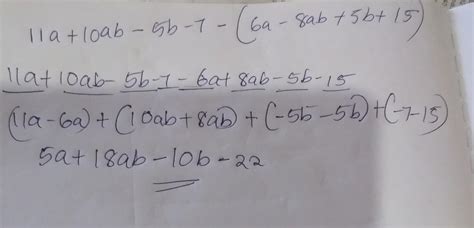 11a+10ab-5b-7-(6a-8ab+5b+15)
11a+10ab-5b-7-6a+8ab-5b-15
(11a-6a)+(10ab+8ab)+(-5b-5b)+(-7-15)
5a+18ab-10b-22